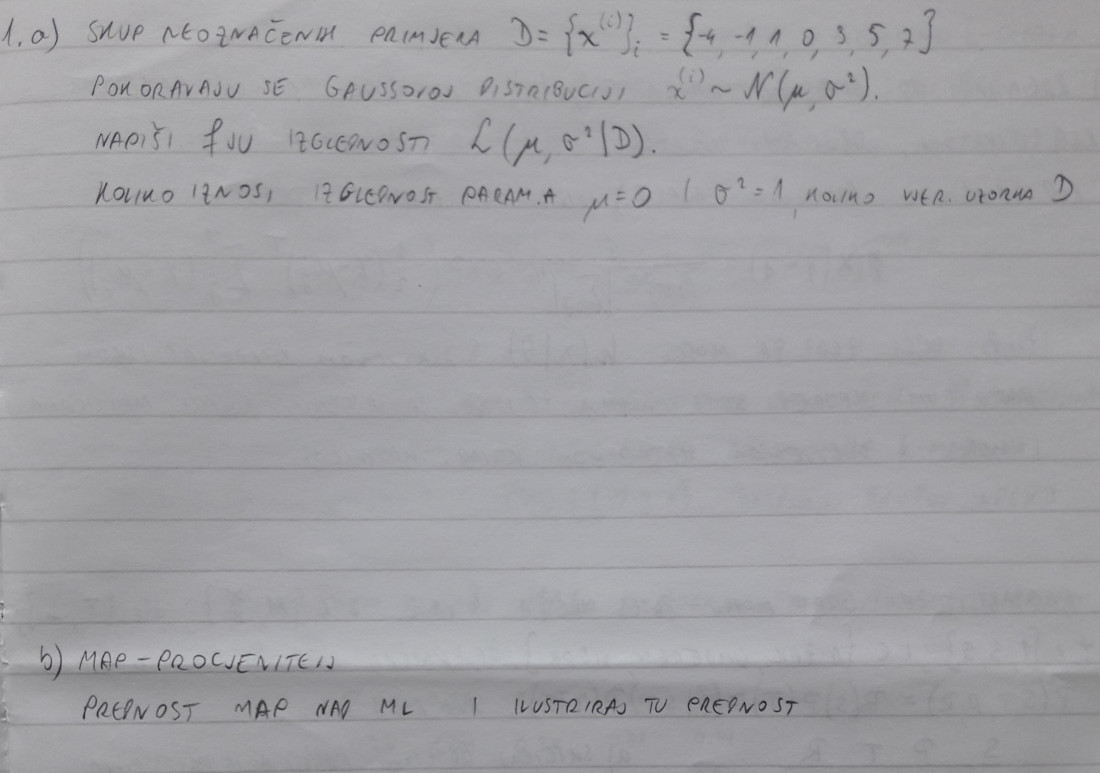 1. a) SKUP NEOZNAČENIH PRIMJERA D = {x^(i)}_i = {-4, -1, 1, 0, 3, 5, 7}
POKORAVAJU SE GAUSSOVOJ DISTRIBUCIJI x^(i) ~ N(μ, σ²).
NAPIŠI fJU IZGLEDNOSTI L(μ, σ²|D).
KOLIKO IZNOSI IZGLEDNOST PARAM.A μ=0 I σ²=1, KOLIKO VJER. UZORKA D
b) MAP - PROCJENITELJ
PREDNOST MAP NAD ML I ILUSTRIRAJ TU PREDNOST